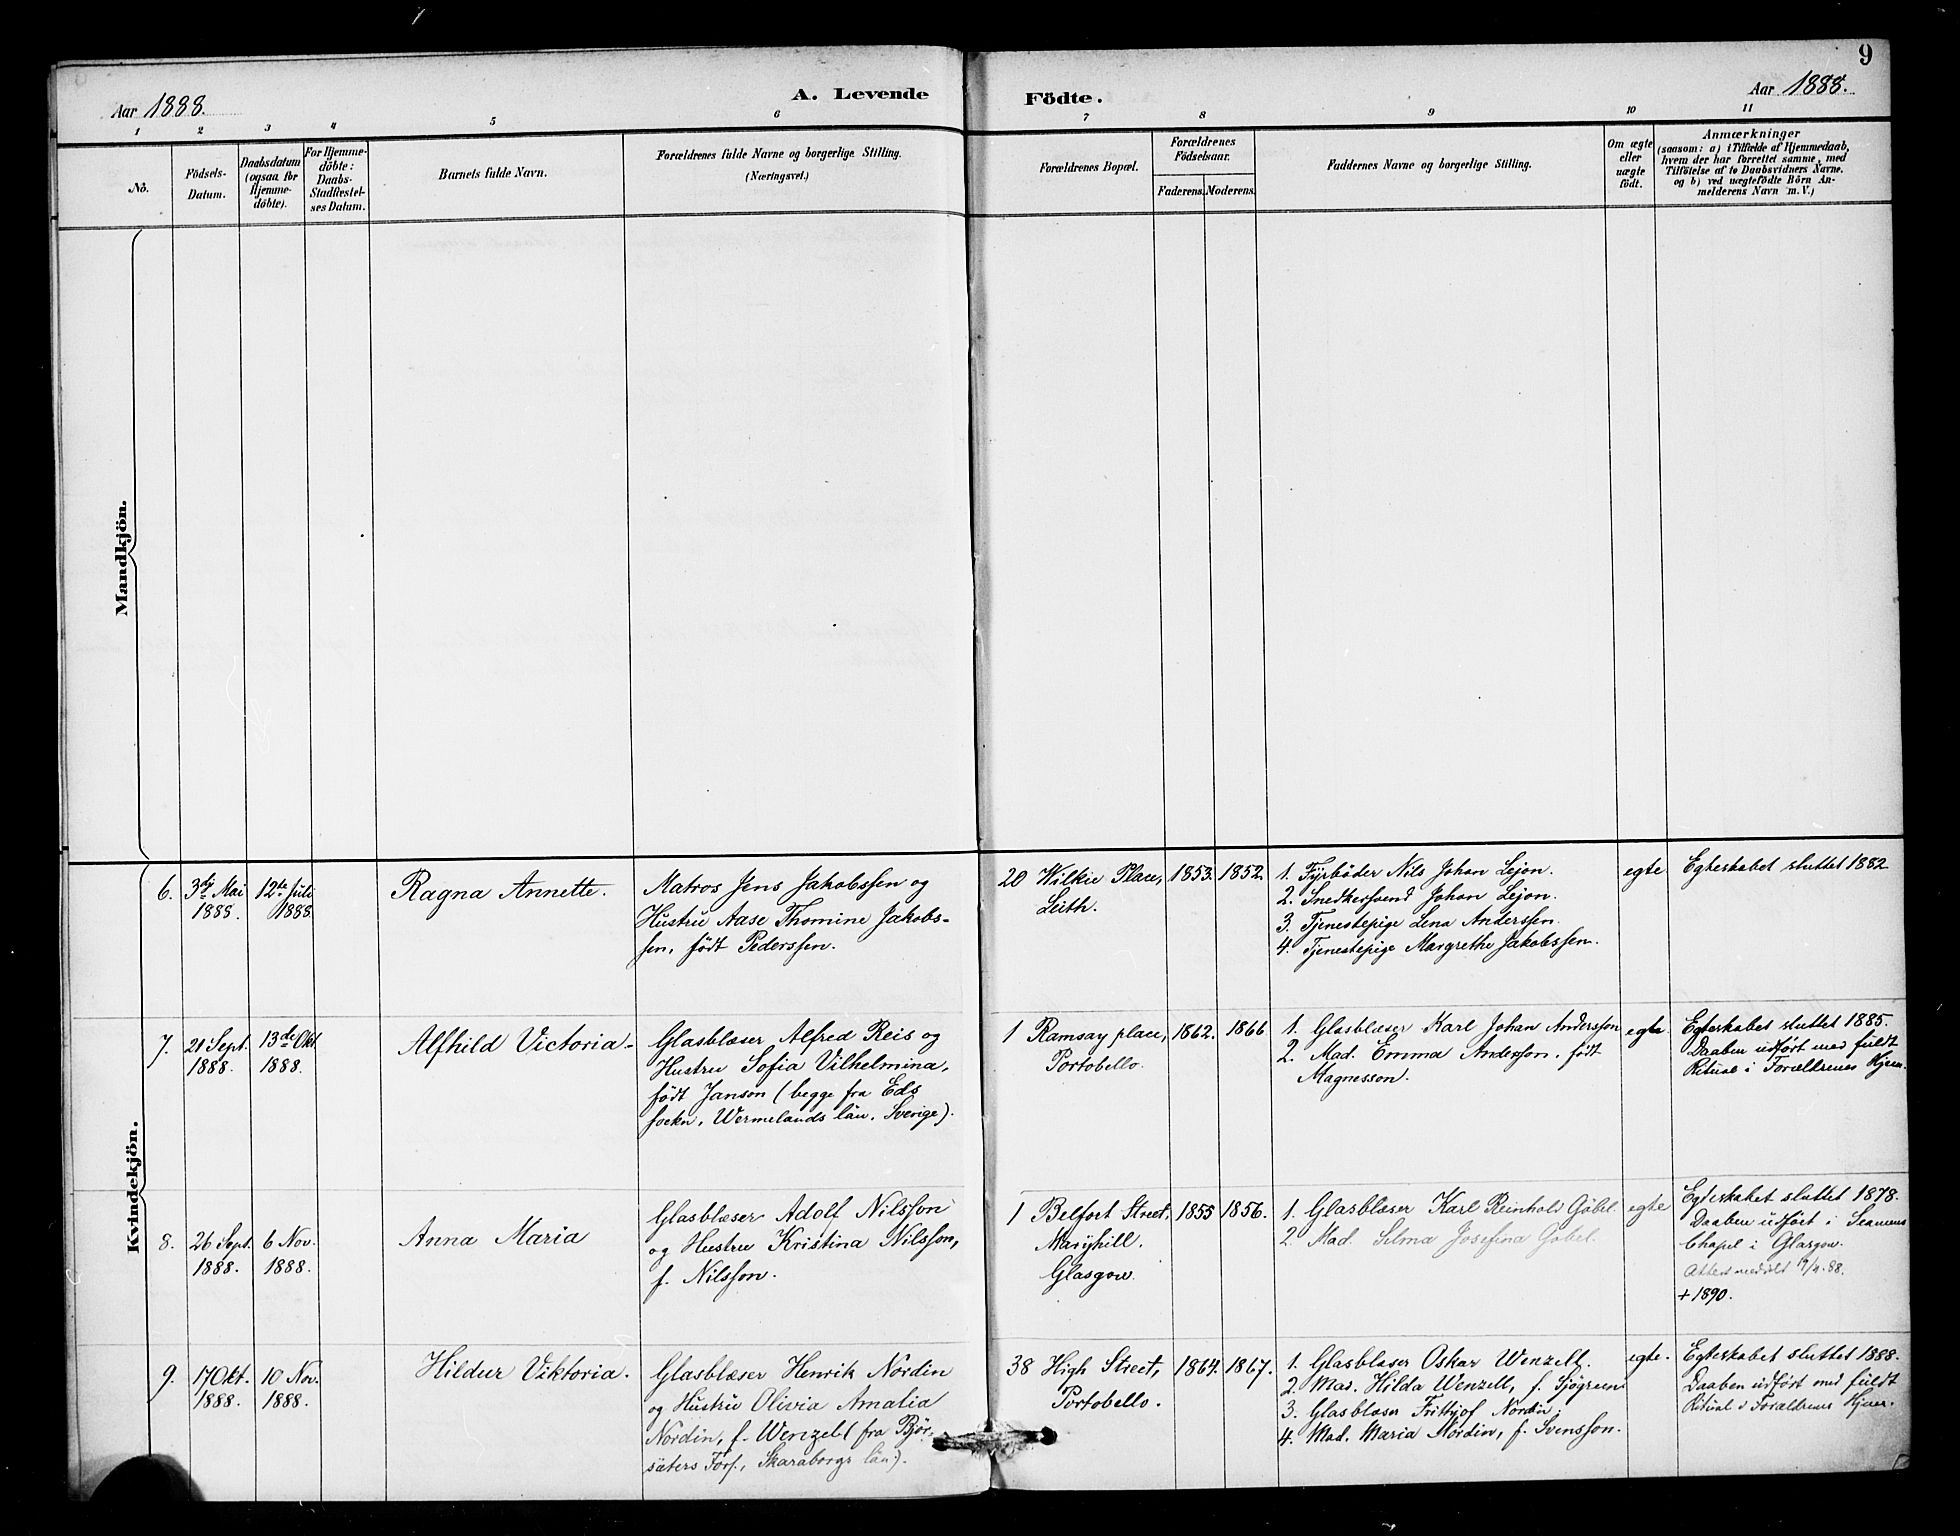 9
Aar 1888.
A. Levende
Födte.
Aar 1888.
1 2 3 4 5 6 7 8 9 10 11
No.
Födsels-
Datum.
Daabsdatum
(ogsaa for
Hjemme-
döbte).
For Hjemme-
döbte:
Daabs-
Stadfestel-
ses Datum.
Barnets fulde Navn.
Forældrenes fulde Navne og borgerlige Stilling.
(Næringsvei.)
Forældrenes Bopæl.
Forældrenes
Födselsaar.
Faderens. Moderens.
Faddernes Navne og borgerlige Stilling.
Om ægte
eller
uægte
födt.
Anmærkninger
(saasom: a) i Tilfælde af Hjemmedaab,
hvem der har forrettet samme, med
Tilföielse af to Daabsvidners Navne,
og b) ved uægtefödte Börn An-
melderens Navn m. V.)
Mandkjön.
Kvindekjön.
6.
3die Mai
1888.
12te Juli
1888.
Ragna Annette.
Matros Jens Jakobssen og
Hustru Aase Thomine Jakobs-
sen, födt Pederssen.
20 Wilkie Place,
Leith.
1853.
1852.
1. Fyrböder Nils Johan Lejon.
2. Snedkersvend Johan Lejon.
3. Tjenestepige Lena Anderssen.
4. Tjenestepige Margrethe Jakobssen.
egte
Egteskabet sluttet 1882
7.
21 Sept.
1888.
13de Okt.
1888.
Alfhild Victoria.
Glasblæser Alfred Reis og
Hustru Sofia Vilhelmina,
födt Janson (begge fra Eds
sockn, Wermelands län, Sverige).
1 Ramsay place,
Portobello.
1862.
1866
1. Glasblæser Karl Johan Andersson
2. Mad. Emma Andersson, födt
Magnesson.
egte
Egteskabet sluttet 1885.
Daaben udfört med fuldt
Ritual i Forældrenes Hjem.
8.
26 Sept.
1888.
6 Nov.
1888.
Anna Maria
Glasblæser Adolf Nilsson
og Hustru Kristina Nilsson,
f. Nilsson.
1 Belfort Street,
Maryhill.
Glasgow.
1855
1856.
1. Glasblæser Karl Reinhold Göbel.
2. Mad. Selma Josefina Göbel.
egte
Egteskabet sluttet 1878.
Daaben udfört i Seamens
Chapel i Glasgow.
Attest meddelt
+ 1890.
9.
17 Okt.
1888.
10 Nov.
1888.
Hildur Viktoria.
Glasblæser Henrik Nordin
og Hustru Olivia Amalia
Nordin, f. Wenzell (fra Björ-
säters Förs., Skaraborgs län).
38 High Street,
Portobello.
1864.
1867.
1. Glasblæser Oskar Wenzell.
2. Mad. Hilda Wenzell, f. Sjögreen
3. Glasblæser Frithjof Nordin.
4. Mad. Maria Nordin, f. Svensson.
egte.
Egteskabet sluttet 1888.
Daaben udfört med fuldt
Ritual i Forældrenes Hjem.